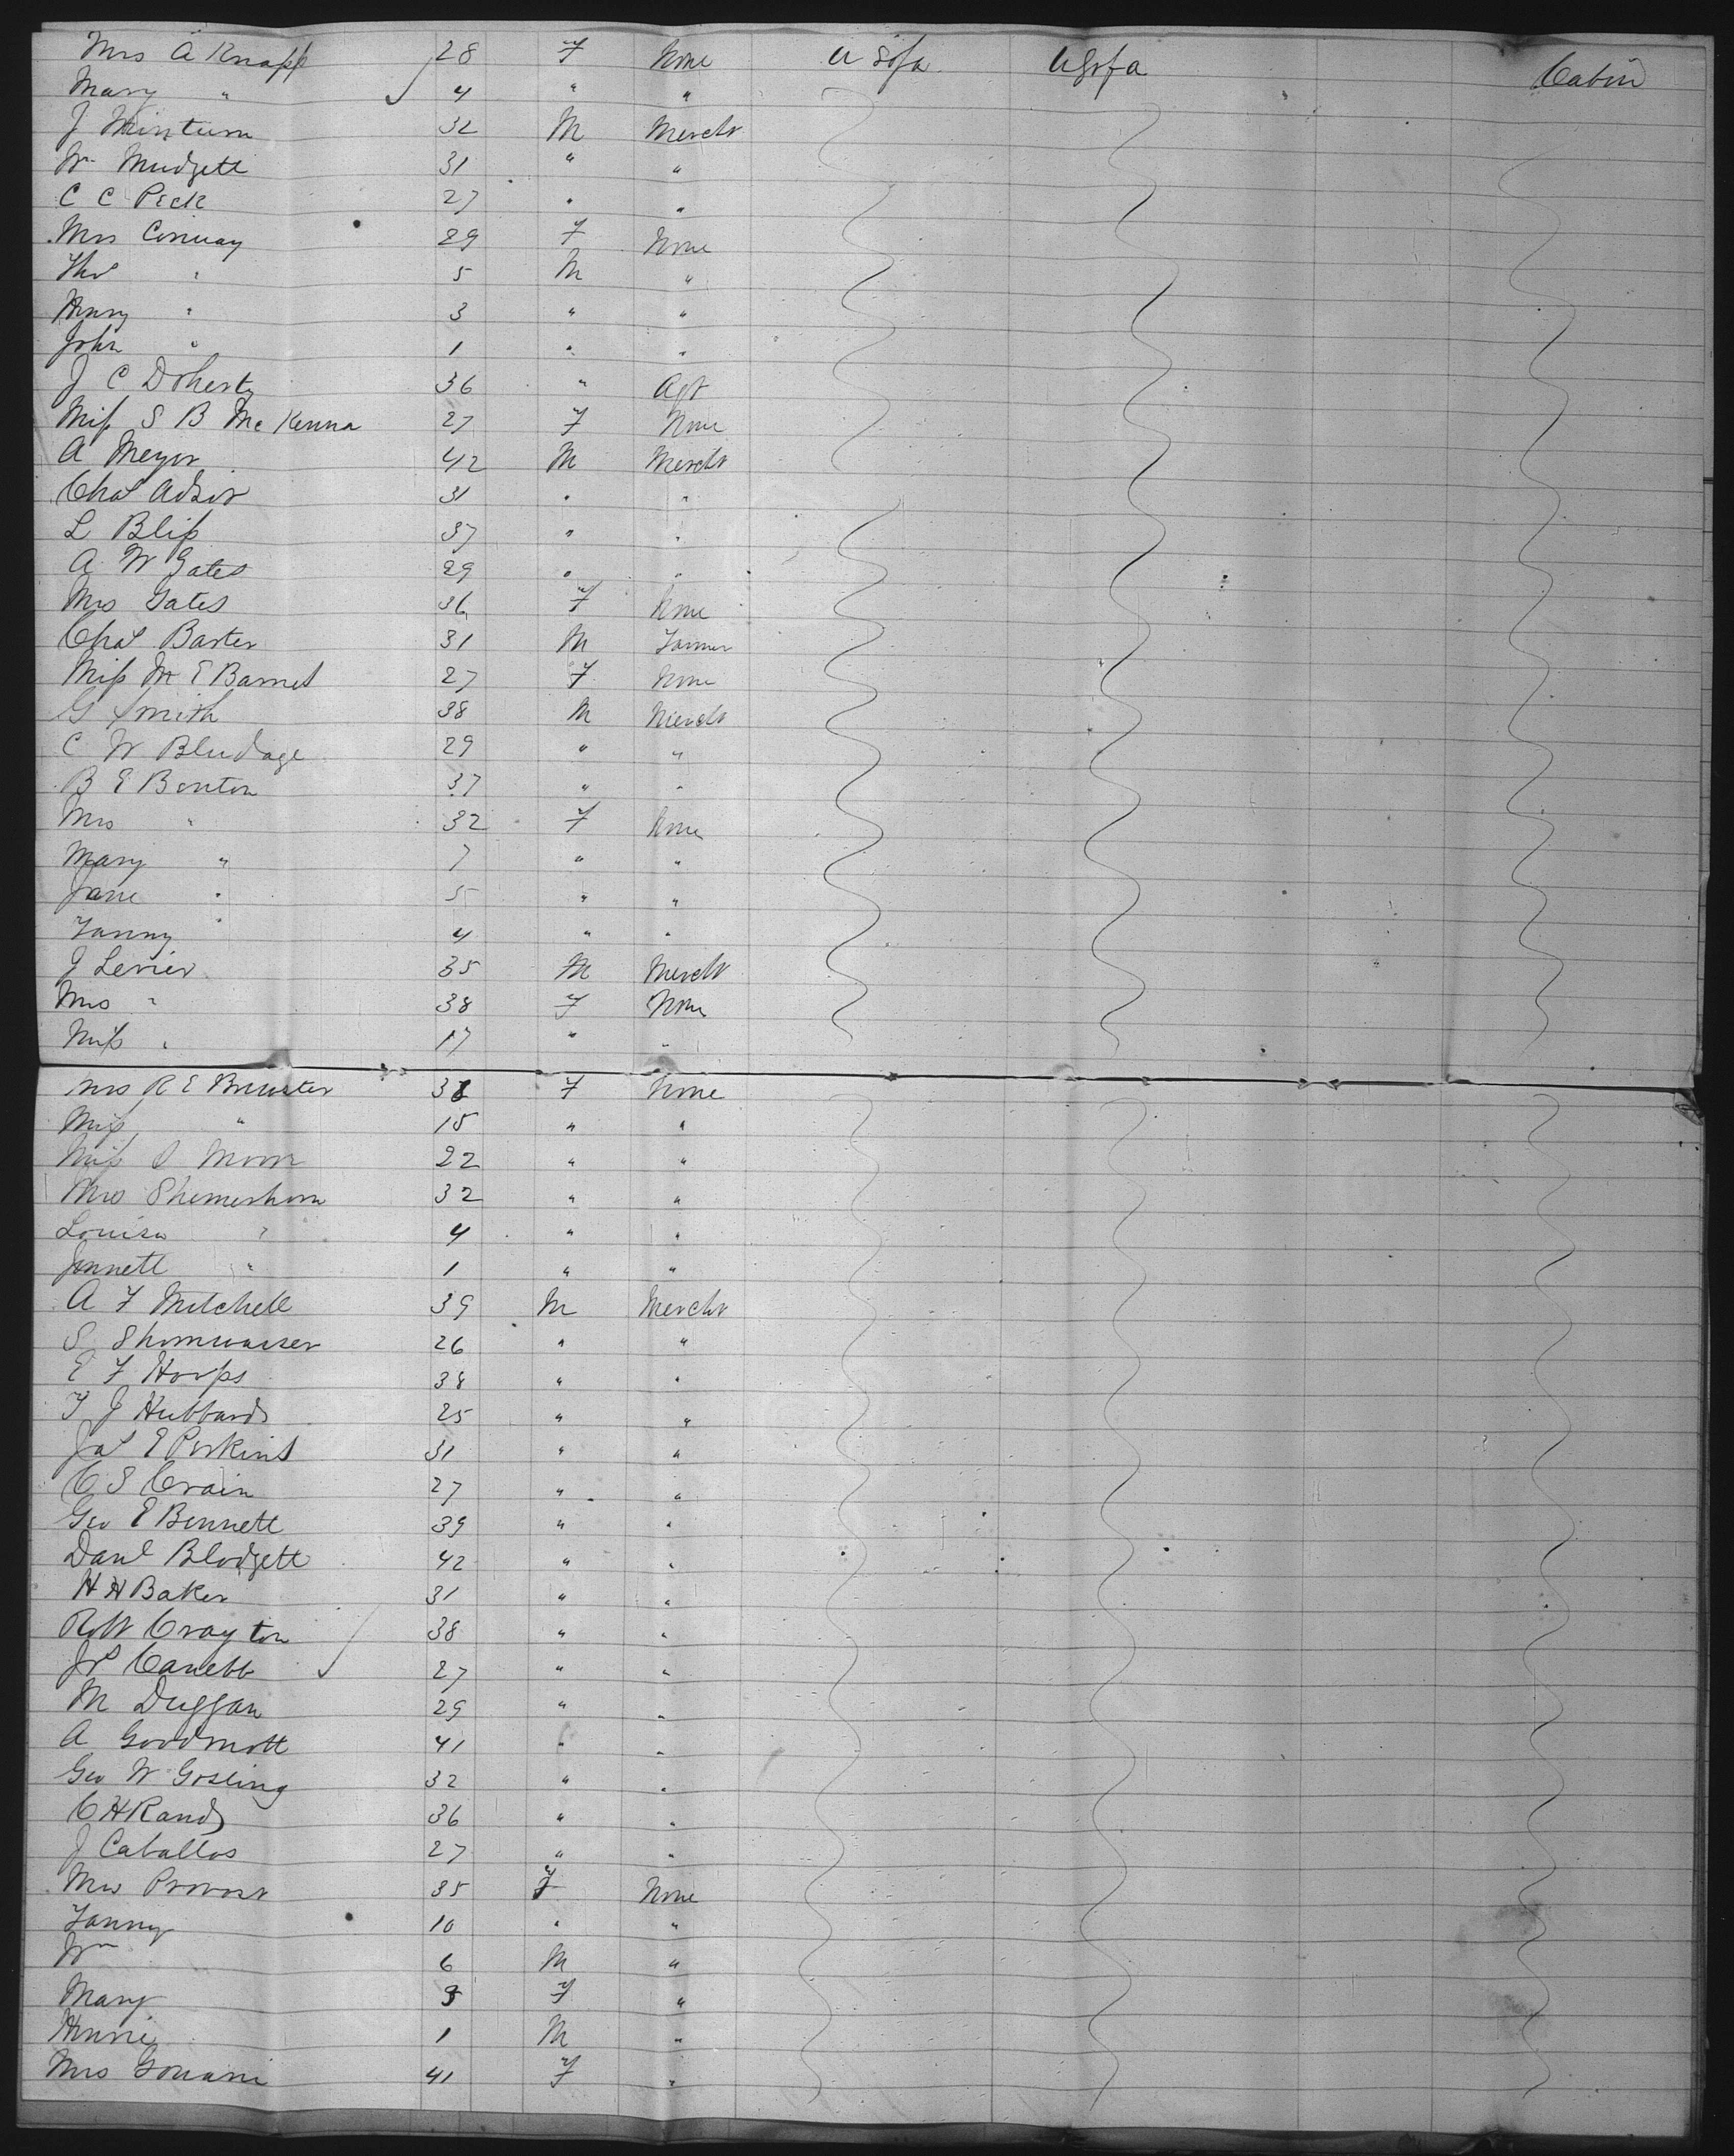 Mrs A Knapp 28 F None U S of a U S of a Cabin
Mary " 4 " "
J Minturn 32 M Mercht
Wm Mudgett 31 " "
C C Peck 27 " "
Mrs Conway 29 F None
Thos " 5 M "
Henry " 3 " "
John " 1 " "
J C Doherty 36 " Agt
Miss S B McKenna 27 F None
A Meyer 42 M Mercht
Chas 31 " "
L Bliss 37 " "
A W Gates 29 " "
Mrs Gates 36 F None
Chas Baxter 31 M Farmer
Miss M E Barnes 27 F None
G Smith 38 M Mercht
C W Bludage 29 " "
B E Benton 37 " "
Mrs " 32 F None
Mary " 7 " "
Jane " 5 " "
Fanny " 4 " "
J 35 M Mercht
Mrs " 38 F None
Miss " 17 " "
Mrs R E Brewster 38 F None
Miss " 15 " "
Miss S Moore 22 " "
Mrs Shemerhorn 32 " "
Louisa " 4 " "
Jennett " 1 " "
A F Mitchell 39 M Mercht
S 26 " "
E F Hoops 38 " "
F J Hubbard 25 " "
Jas E Perkins 31 " "
C S Crain 27 " "
Geo E Bennett 39 " "
Danl Blodgett 42 " "
H H Baker 31 " "
Robt Crayton 38 " "
27 " "
M Duggan 29 " "
A Goodmott 41 " "
Geo W Gosling 32 " "
C H Rand 36 " "
J Caballos 27 " "
Mrs Provost 35 F None
Fanny 10 " "
Wm 6 M "
Mary F "
1 M "
Mrs 41 F "